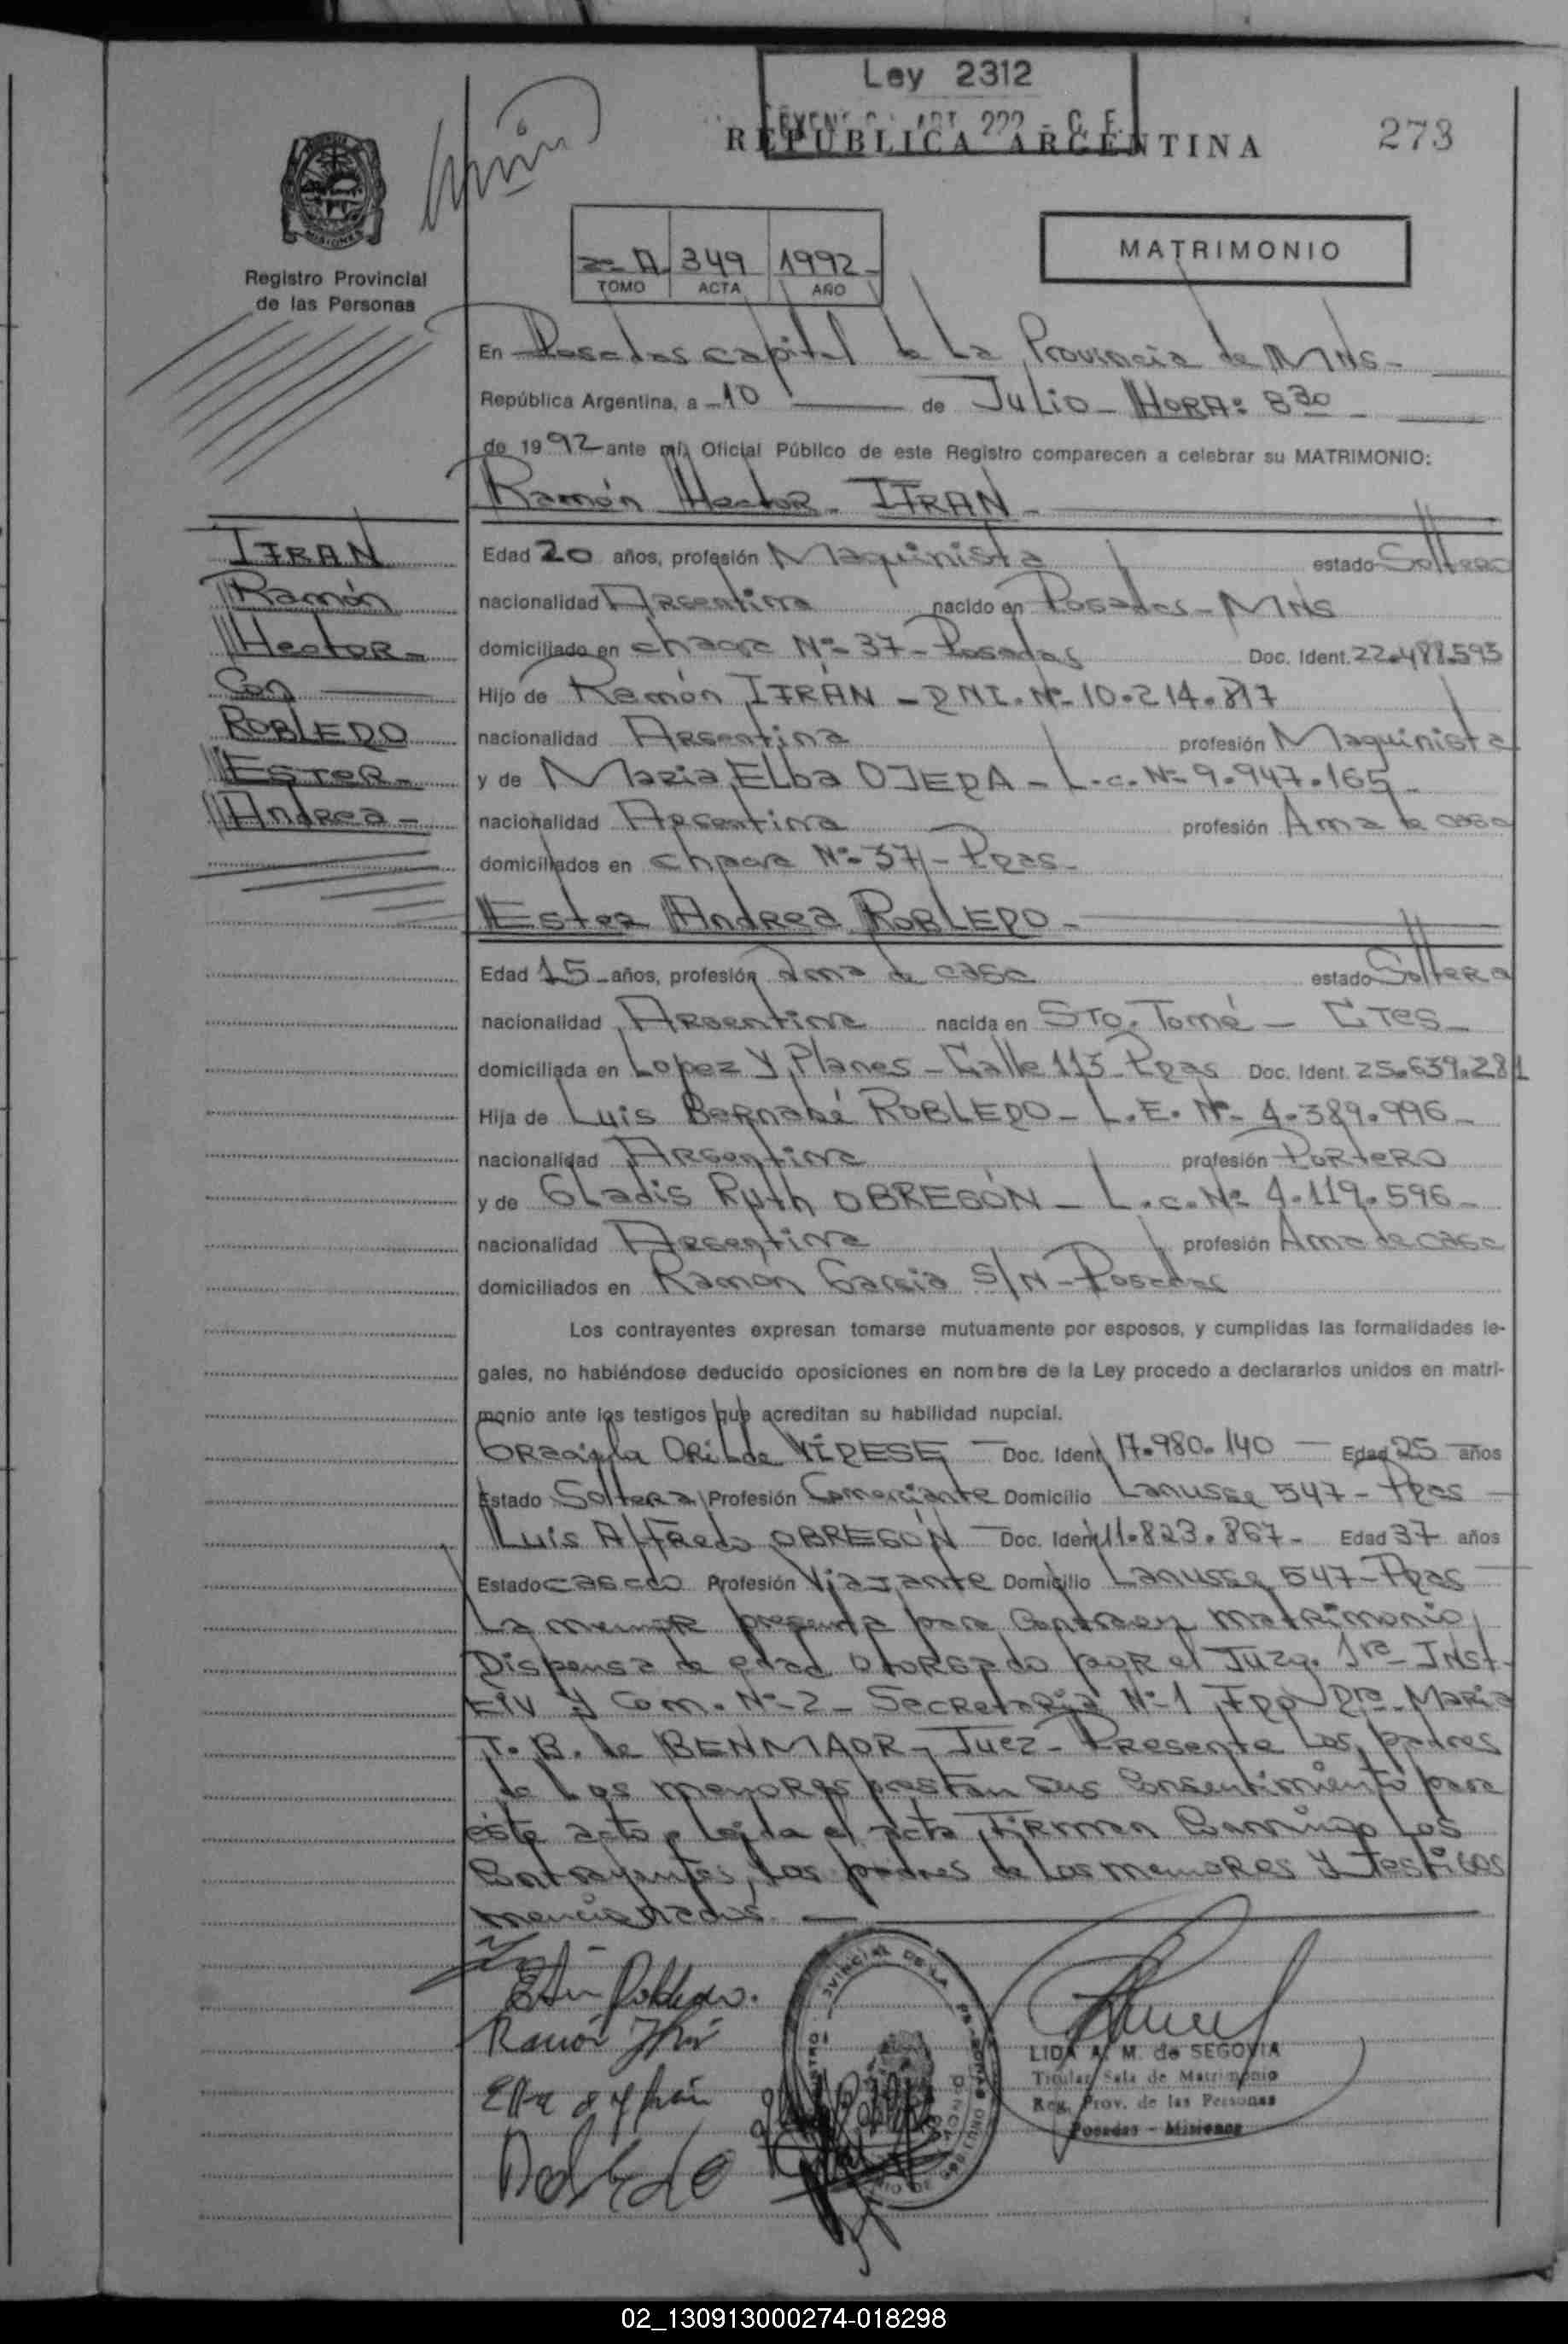 Ley 2312
REPUBLICA ARGENTINA
273
MISIONES
Registro Provincial
de las Personas
2º A 349 1992-
TOMO ACTA AÑO
MATRIMONIO
En Posadas capital de La Provincia de MNS-
República Argentina, a -10 de Julio- HORA: 8 30 -
de 1992 ante mí, Oficial Público de este Registro comparecen a celebrar su MATRIMONIO:
Ramón Hector- IFRAN-
IFRAN
Ramón
Hector-
Con
ROBLEDO
Ester-
Andrea-
Edad 20 años, profesión Maquinista estado Soltero
nacionalidad Argentina nacido en Posadas-MNS
domiciliado en chacra Nº-37-Posadas Doc. Ident. 22.488.593
Hijo de Ramón IFRÁN - DNI. Nº- 10.214.817
nacionalidad Argentina profesión Maquinista
y de Maria Elba OJEDA - L.c. Nº 9.947.165-
nacionalidad Argentina profesión Ama de casa
domiciliados en chacra Nº-37-Pdas-
Ester Andrea ROBLEDO-
Edad 15 años, profesión Ama de casa estado Soltera
nacionalidad Argentina nacida en STO. Tomé - CTES-
domiciliada en Lopez Y Planes-Calle 113-Pdas Doc. Ident. 25.639.281
Hija de Luis Bernabé ROBLEDO- L.E. Nº- 4.389.996-
nacionalidad Argentina profesión Portero
y de Gladis Ruth OBREGÓN - L.c. Nº 4.119.596-
nacionalidad Argentina profesión Ama de casa
domiciliados en Ramón Garcia S/N-Posadas
Los contrayentes expresan tomarse mutuamente por esposos, y cumplidas las formalidades le-
gales, no habiéndose deducido oposiciones en nombre de la Ley procedo a declararlos unidos en matri-
monio ante los testigos que acreditan su habilidad nupcial.
Graciela Doc. Ident. 17.980.140 Edad 25 años
Estado Soltera Profesión Comerciante Domicilio Lanusse 547-Pdas
Luis Alfredo OBREGÓN Doc. Ident. 11.823.867- Edad 37 años
Estado casado Profesión Viajante Domicilio Lanusse 547-Pdas
La menor presenta para Contraer matrimonio
Dispensa de edad otorgado por el Juzg. 1ra Inst-
CIV y Com. Nº-2- Secretaria Nº-1 FDO Dra- Maria
T. B. de BENMAOR-Juez- Presente Los padres
de Los menores prestan sus Consentimiento para
éste acto. Leida el acta, Firman Conmigo Los
Contrayentes, Los padres de Los menores y Testigos
mencionados.
Robledo.
Ramón
LIDA A. M. de SEGOVIA
Titular Sala de Matrimonio
Reg. Prov. de las Personas
Posadas - Misiones
02_130913000274-018298